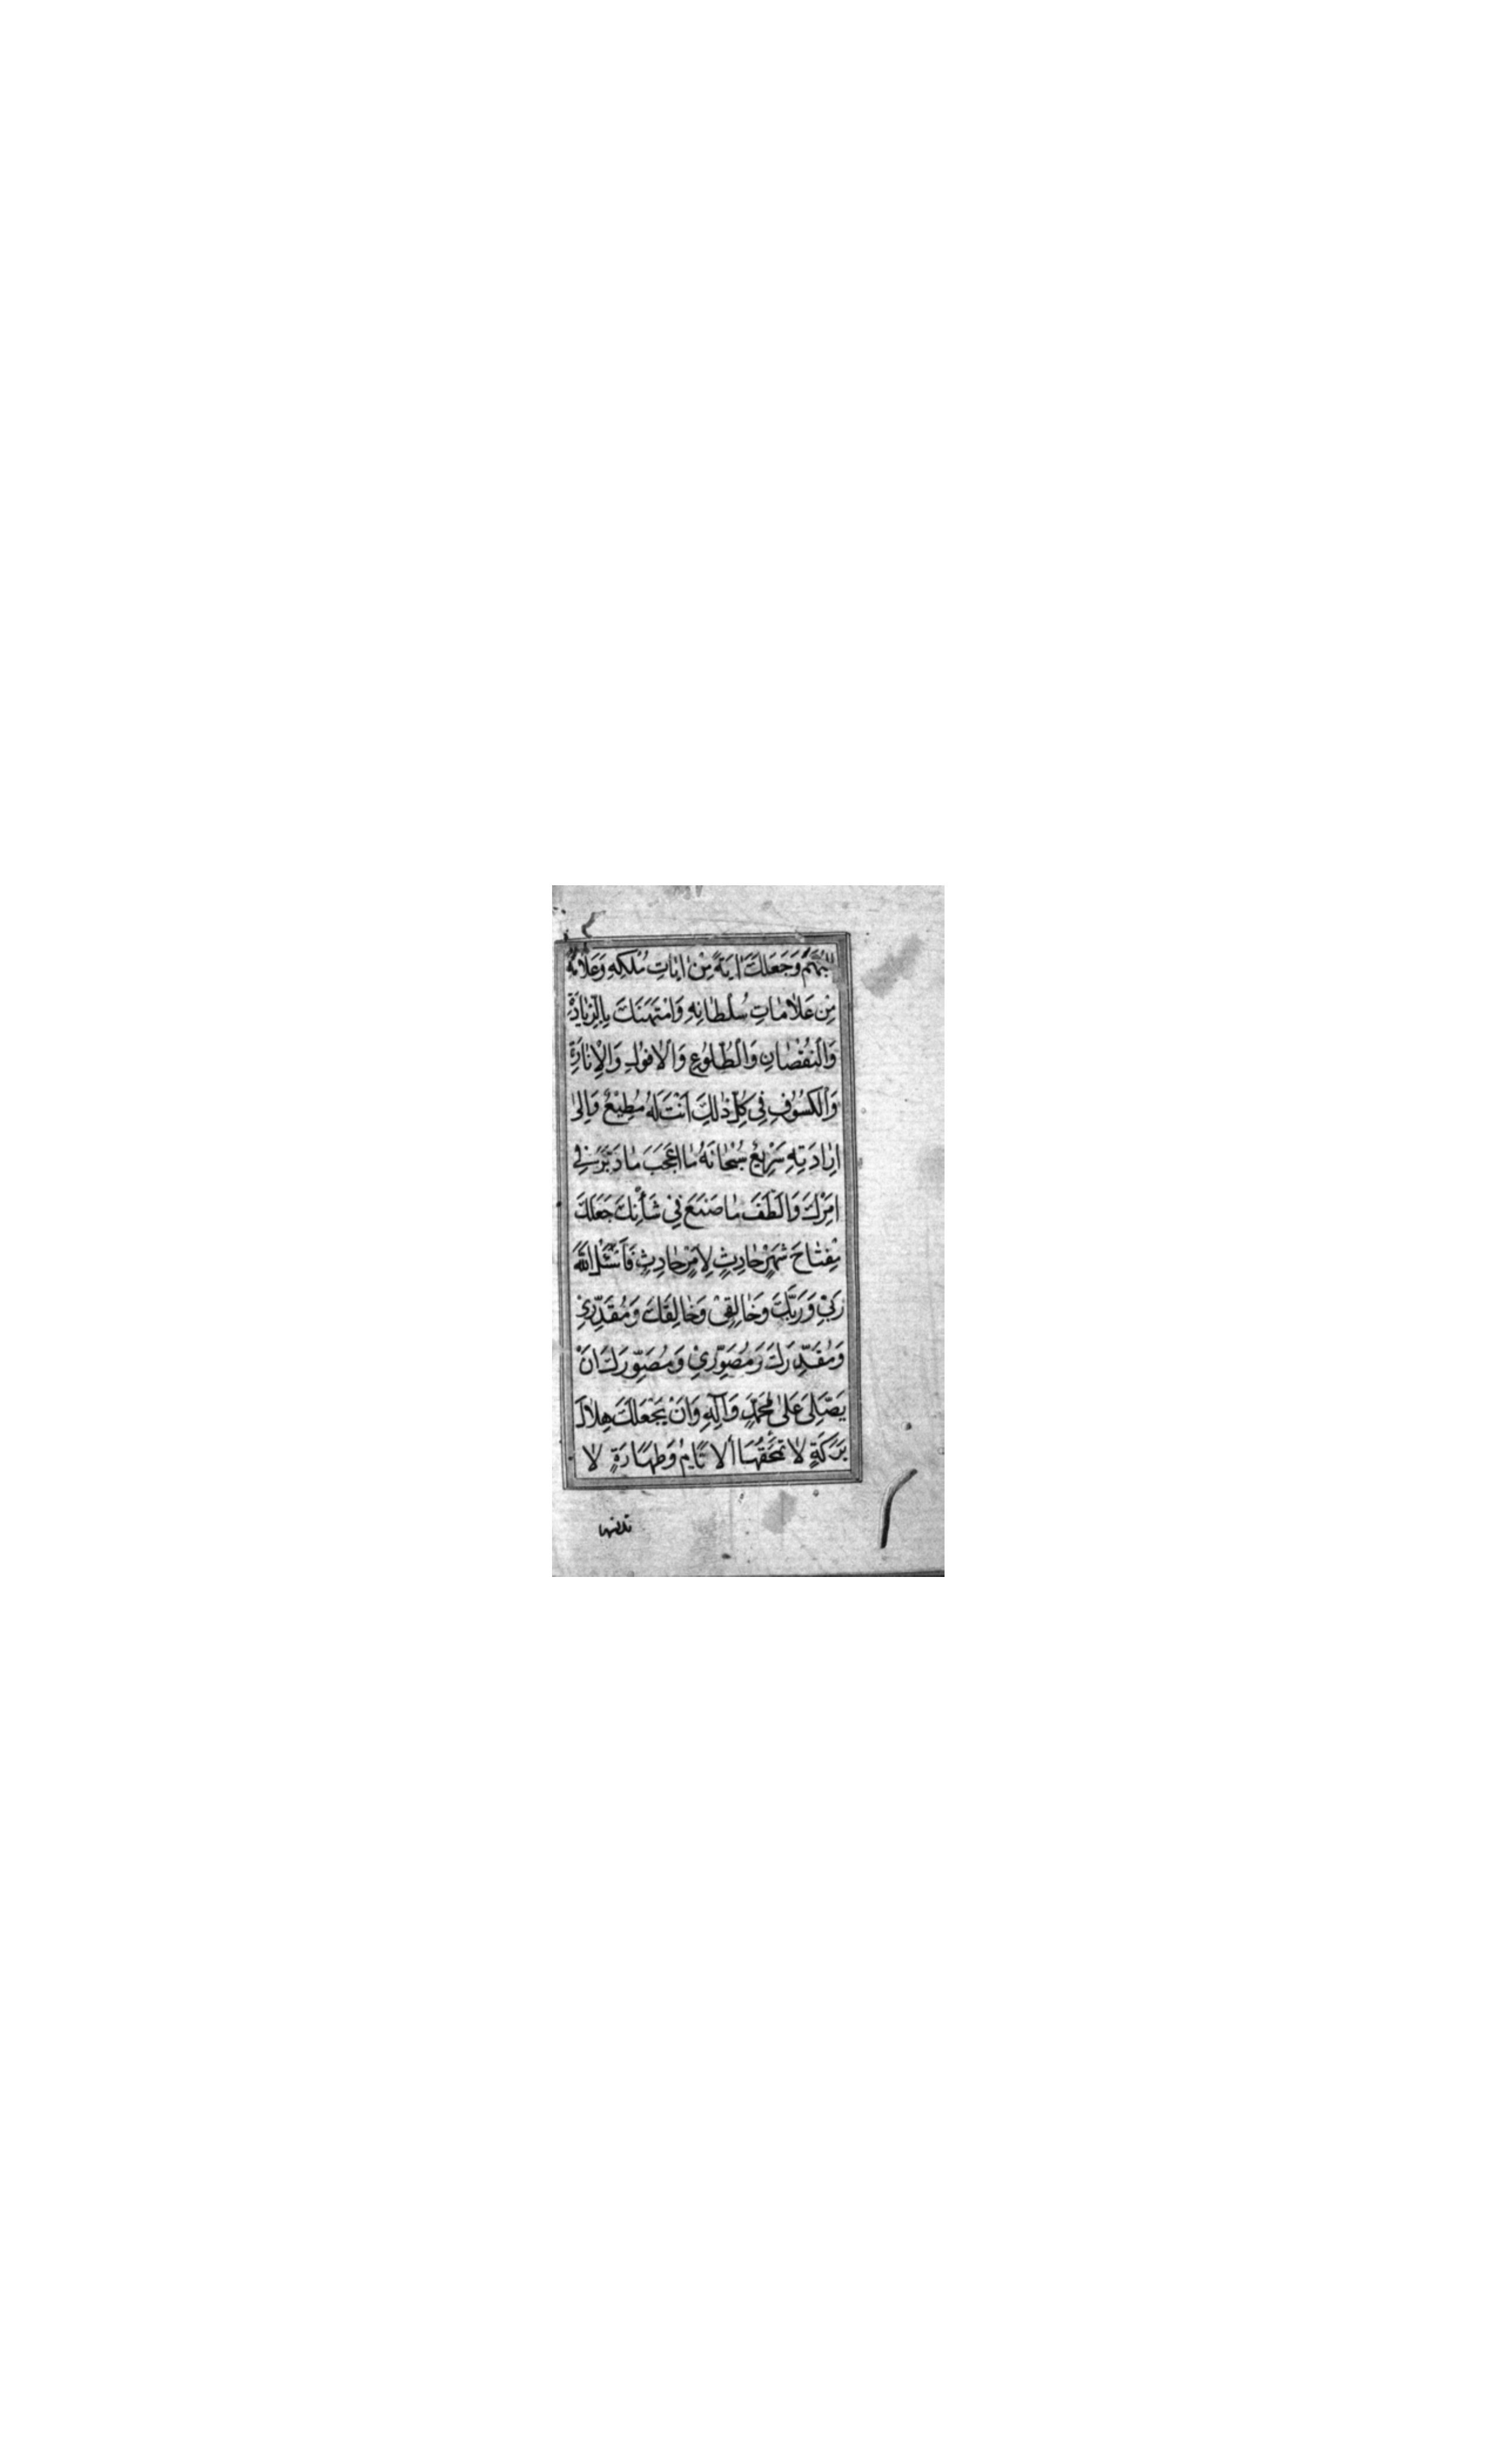 الْبُهَمَ وَجَعَلَكَ اٰيَةً مِنْ اٰيٰاتِ مُلْكِهِ وَعَلٰامَةً
مِنْ عَلٰامٰاتِ سُلْطٰانِهِ وَامْتَهَنَكَ بِالزِّيٰادَةِ
وَالنُّقْصٰانِ وَالطُّلُوعِ وَالْاُفُولِ وَالْاِنٰارَةِ
وَالْكُسُوفِ فِي كُلِّ ذٰلِكَ اَنْتَ لَهُ مُطِيعٌ وَاِلىٰ
اِرٰادَتِهِ سَرِيعٌ سُبْحٰانَهُ مٰا اَعْجَبَ مٰا دَبَّرَ فِي
اَمْرِكَ وَاَلْطَفَ مٰا صَنَعَ فِي شَأْنِكَ جَعَلَكَ
مِفْتٰاحَ شَهْرٍ حٰادِثٍ لِاَمْرٍ حٰادِثٍ فَاَسْئَلُ اللّٰهَ
رَبِّي وَرَبَّكَ وَخٰالِقِي وَخٰالِقَكَ وَمُقَدِّرِي
وَمُقَدِّرَكَ وَمُصَوِّرِي وَمُصَوِّرَكَ اَنْ
يُصَلِّيَ عَلىٰ مُحَمَّدٍ وَآلِهِ وَاَنْ يَجْعَلَكَ هِلٰالَ
بَرَكَةٍ لٰا تَمْحَقُهَا الْاَيّٰامُ وَطَهٰارَةٍ لٰا
تدنسها